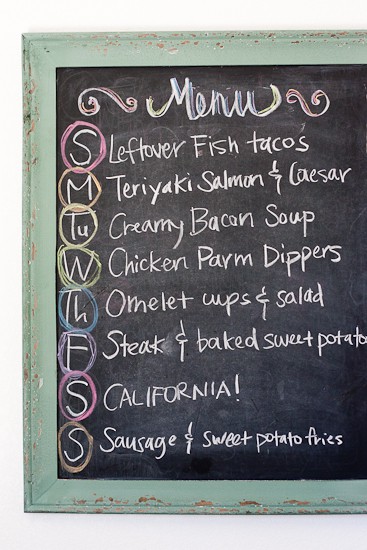 Menu
S Leftover Fish tacos
M Teriyaki Salmon & Caesar
Tu Creamy Bacon Soup
W Chicken Parm Dippers
Th Omelet cups & salad
F Steak & baked sweet potato
S CALIFORNIA!
S Sausage & sweet potato fries